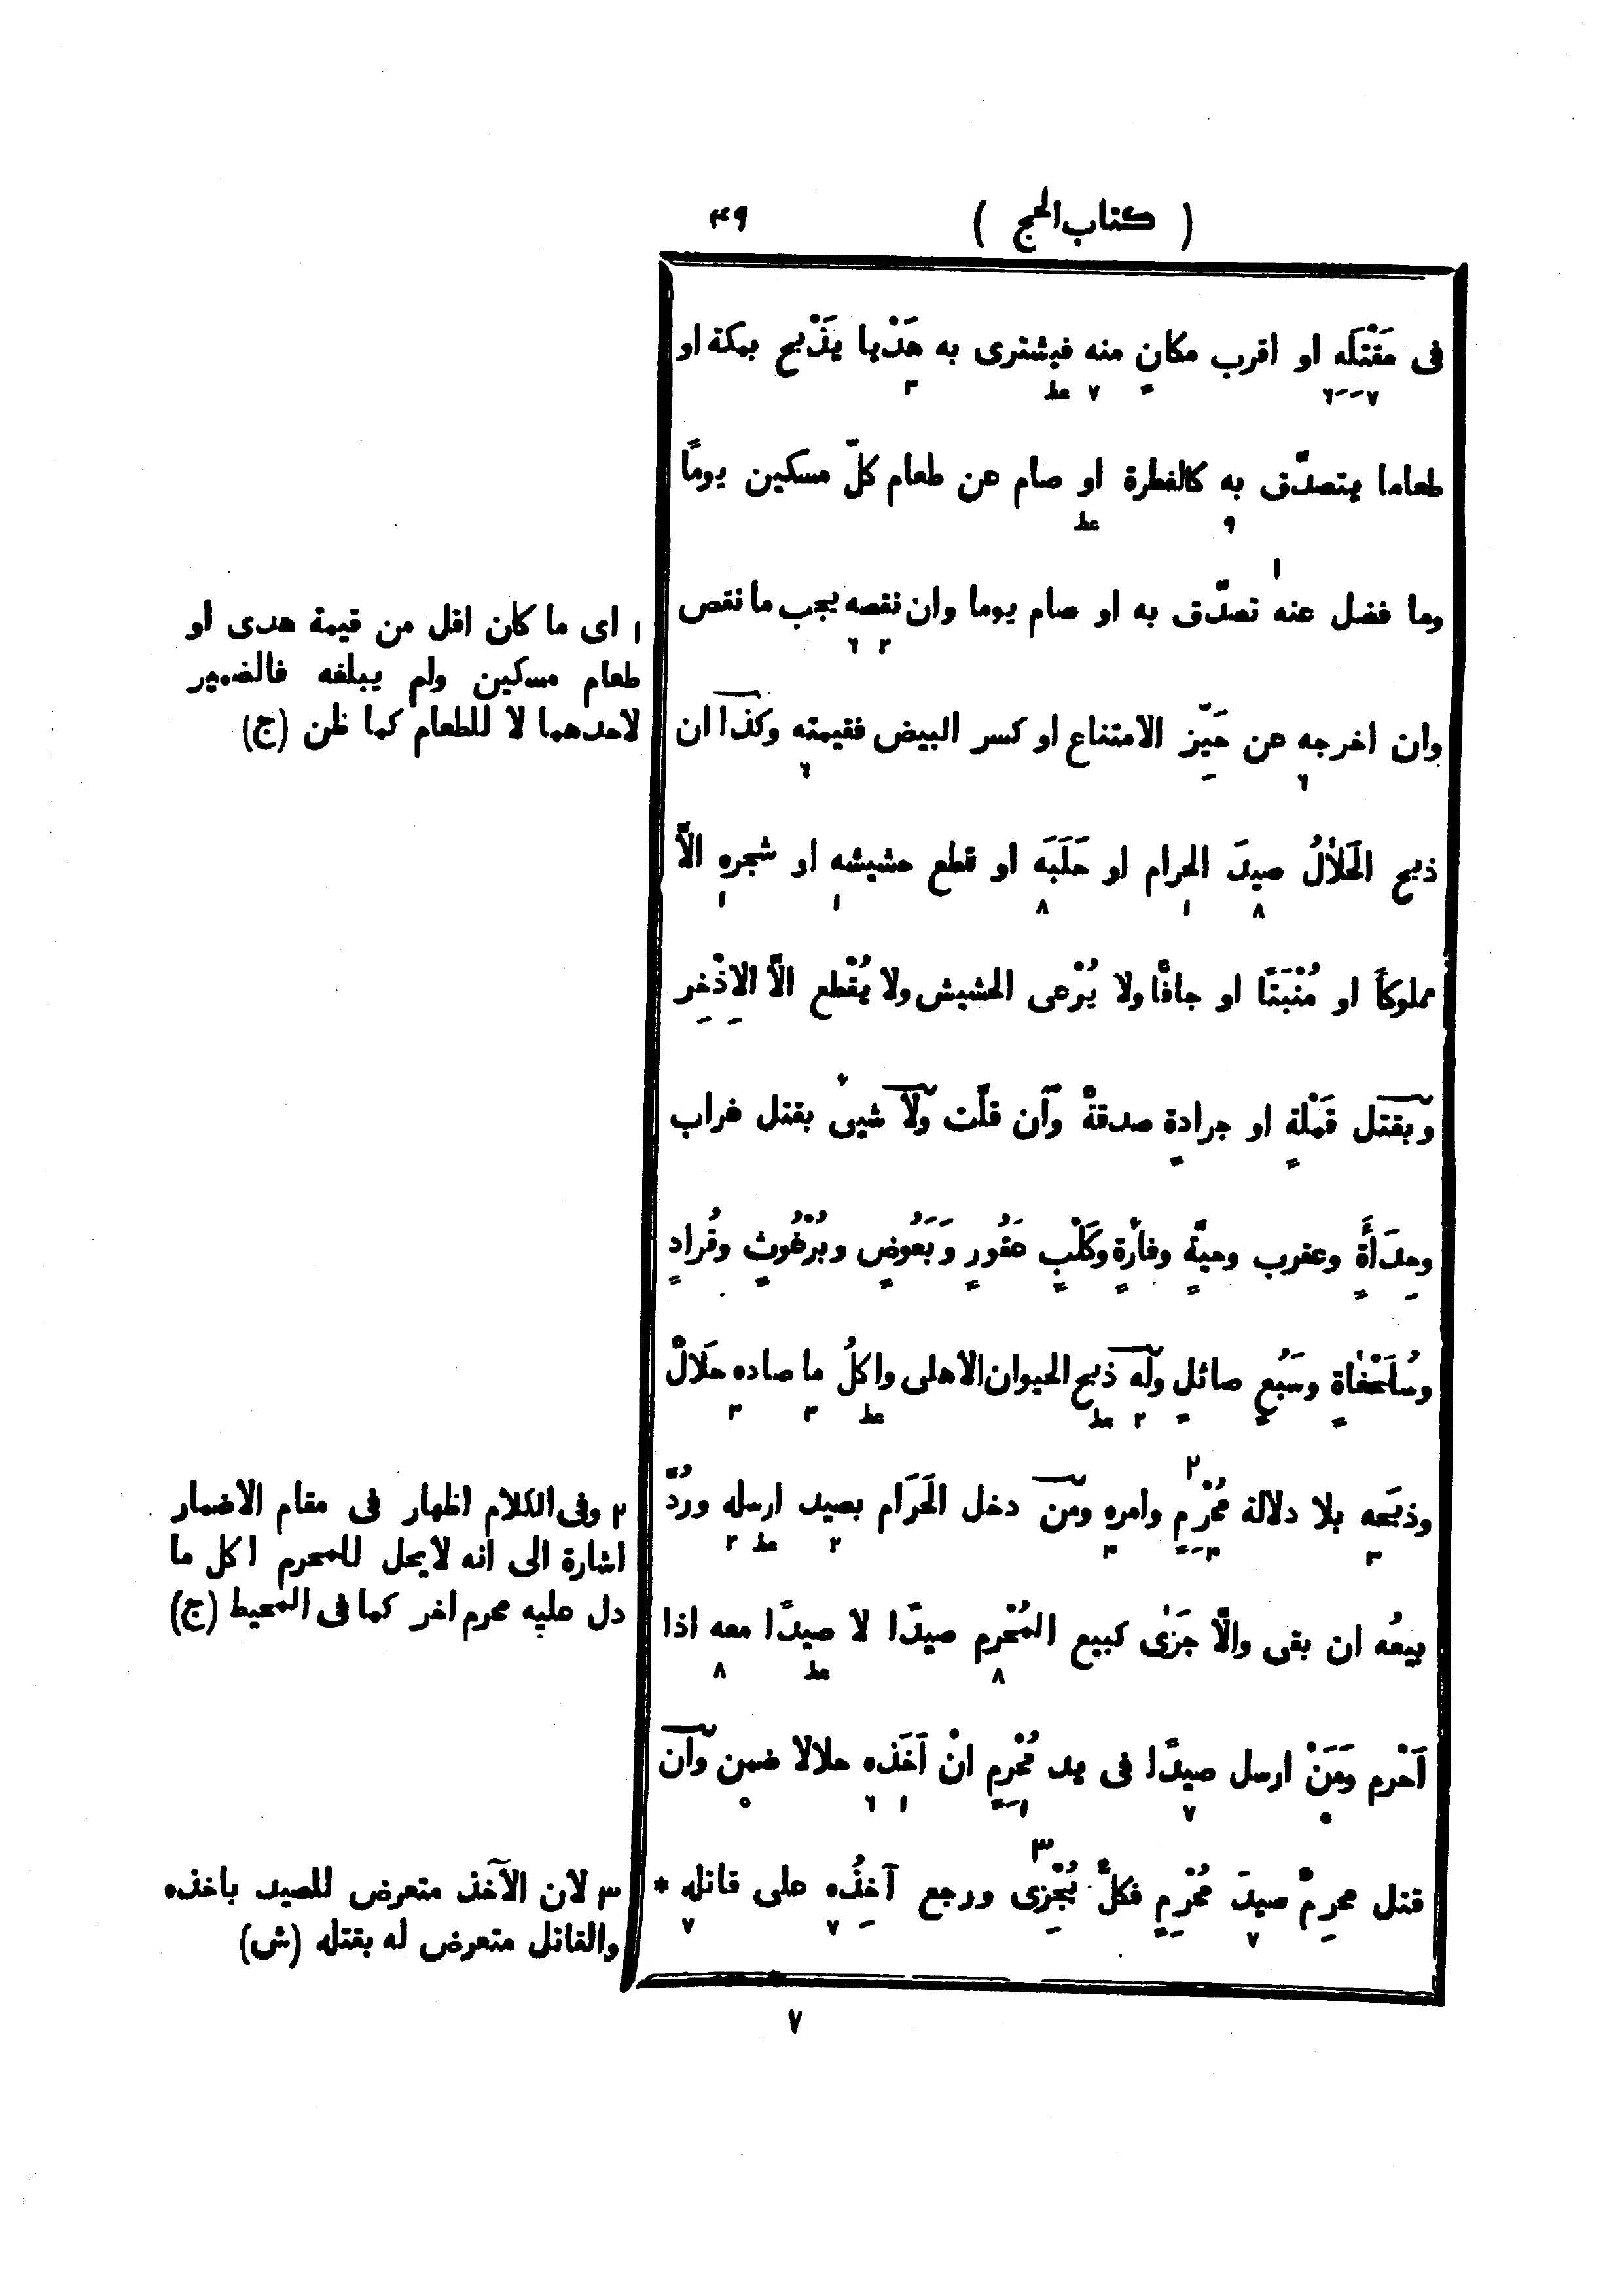 ( كتاب الحج ) ۴۹
فى مَقْتَلَه او اقرب مكانٍ منه فيشترى به هَدْيا يَذْبح بمكة او
طعاما يتصدّق به كالفطرة او صام عن طعام كلّ مسكين يومًا
وما فضل عنه ١ تصدّق به او صام يوما وان نقصه يجب ما نقص
وان اخرجه عن حَيِّز الامتناع او كسر البيض فقيمته وكذا ان
ذبح الحَلالُ صيدَ الحرام او حَلَبَه او قطع حشيشه او شجره الاّ
مملوكاً او مُنْبَتًا او جافًا ولا يُرْعى الحشيش ولا يُقْطع الاّ الاِذْخِر
وبقتل قَمْلةٍ او جرادةٍ صدقةٌ وان قلّت ولا شيئ بقتل غراب
وحِدَأَةٍ وعقرب وحيةٍ وفأرةٍ وكَلْبٍ عَقُورٍ وبَعُوضٍ وبُرْغُوثٍ وقُرادٍ
وسُلَحْفاةٍ وسَبُعٍ صائلٍ وله ذبح الحيوان الاهلى واكلُ ما صاده حَلالٌ
وذبَحه بلا دلالة مُحْرِمٍ ٢ وامره ومن دخل الحَرَام بصيد ارسله ورُدَّ
بيعُه ان بقى والاّ جَزٰى كبيع المُحْرم صيدًا لا صيدًا معه اذا
اَحْرم ومَنْ ارسل صيدًا فى يد مُحْرِمٍ انْ اَخَذه حلالا ضمن وان
قتل محرِمٌ صيدَ مُحْرِمٍ فكلٌّ يُجْزِى ٣ ورجع آخِذُه على قاتله *
١ اى ما كان اقل من قيمة هدى او
طعام مسكين ولم يبلغه فالضمير
لاحدهما لا للطعام كما ظن (ج)
٢ وفى الكلام اظهار فى مقام الاضمار
اشارة الى انه لايحل للمحرم اكل ما
دل عليه محرم اخر كما فى المحيط (ج)
٣ لان الآخذ متعرض للصيد باخذه
والقاتل متعرض له بقتله (ش)
٧